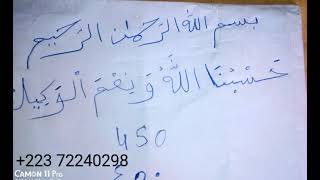 بسم الله الرَّحْمٰنِ الرَّحيم
حَسْبُنَا اللَّهُ وَنِعْمَ الْوَكِيل
450
+223 72240298
CAMON 11 Pro